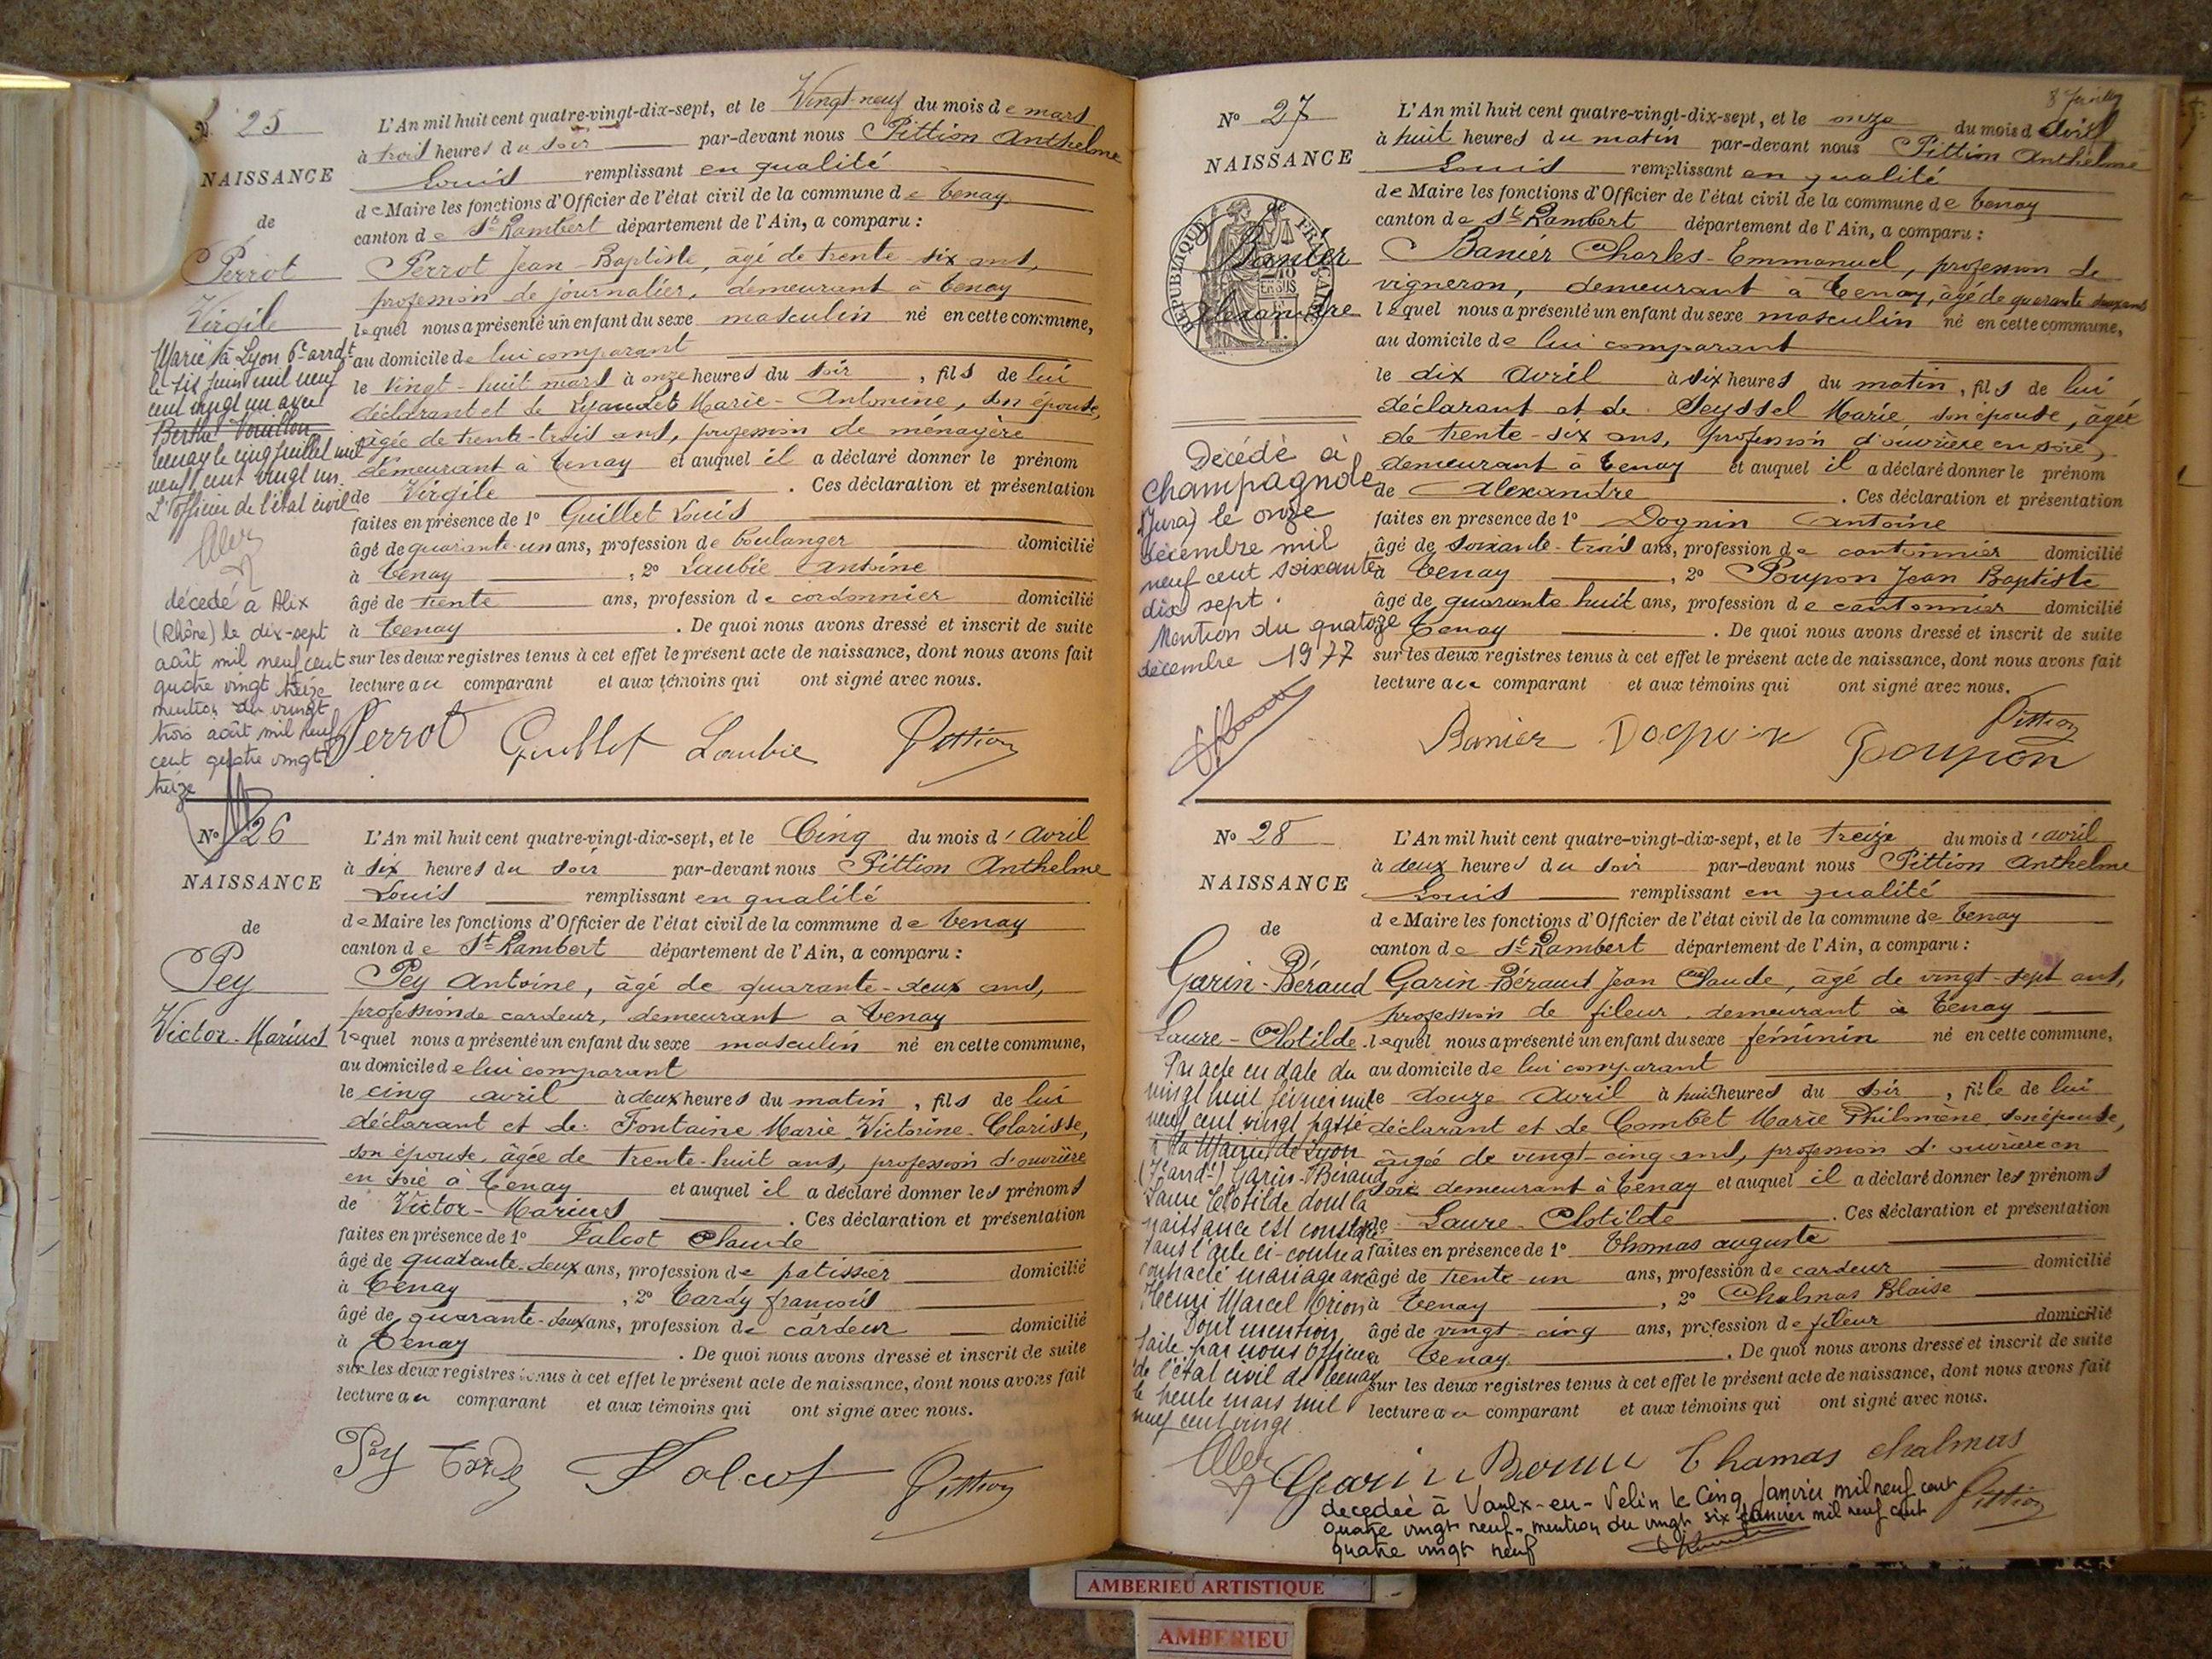 N° 25
NAISSANCE
de
Perrot
Virgile
Marié à Lyon 6e arrdt
le six juin mil neuf
cent vingt un avec
Berthe
Tenay le cinq juillet mil
neuf cent vingt un.
L'officier de l'état civil
décédé à Alix
(Rhône) le dix-sept
août mil neuf cent
quatre vingt treize
mention du vingt
trois août mil neuf
cent quatre vingt
treize
L'An mil huit cent quatre-vingt-dix-sept, et le Vingt-neuf du mois de mars
à trois heures du soir par-devant nous Pittion Anthelme
Louis remplissant en qualité
de Maire les fonctions d'Officier de l'état civil de la commune de Tenay
canton de St Rambert département de l'Ain, a comparu :
Perrot Jean-Baptiste, âgé de trente-six ans,
profession de journalier, demeurant à Tenay
lequel nous a présenté un enfant du sexe masculin né en cette commune,
au domicile de lui comparant
le vingt-huit mars à onze heures du soir, fils de lui
déclarant et de Marie-Antonine, son épouse,
âgée de trente-trois ans, profession de ménagère
demeurant à Tenay et auquel il a déclaré donner le prénom
de Virgile. Ces déclaration et présentation
faites en présence de 1° Guillet Louis
âgé de quarante-un ans, profession de boulanger domicilié
à Tenay, 2° Laubie Antoine
âgé de trente ans, profession de cordonnier domicilié
à Tenay. De quoi nous avons dressé et inscrit de suite
sur les deux registres tenus à cet effet le présent acte de naissance, dont nous avons fait
lecture au comparant et aux témoins qui ont signé avec nous.
Perrot Guillet Laubie Pittion
N° 26
NAISSANCE
de
Pey
Victor-Marius
L'An mil huit cent quatre-vingt-dix-sept, et le Cinq du mois d'avril
à six heures du soir par-devant nous Pittion Anthelme
Louis remplissant en qualité
de Maire les fonctions d'Officier de l'état civil de la commune de Tenay
canton de St Rambert département de l'Ain, a comparu :
Pey Antoine, âgé de quarante-deux ans,
profession de cardeur, demeurant à Tenay
lequel nous a présenté un enfant du sexe masculin né en cette commune,
au domicile de lui comparant
le cinq avril à deux heures du matin, fils de lui
déclarant et de Fontaine Marie Victorine-Clarisse,
son épouse, âgée de trente-huit ans, profession d'ouvrière
en soie à Tenay et auquel il a déclaré donner les prénoms
de Victor-Marius. Ces déclaration et présentation
faites en présence de 1° Falcot Claude
âgé de quarante-deux ans, profession de patissier domicilié
à Tenay, 2° Tardy françois
âgé de quarante-deux ans, profession de cardeur domicilié
à Tenay. De quoi nous avons dressé et inscrit de suite
sur les deux registres tenus à cet effet le présent acte de naissance, dont nous avons fait
lecture au comparant et aux témoins qui ont signé avec nous.
Pey Tardy Falcot Pittion
N° 27
NAISSANCE
de
RÉPUBLIQUE FRANÇAISE
Banier
Alexandre
Décédé à
Champagnole
(Jura) le onze
décembre mil
neuf cent soixante
dix sept.
Mention du quatorze
décembre 1977
L'An mil huit cent quatre-vingt-dix-sept, et le onze du mois d'avril
à huit heures du matin par-devant nous Pittion Anthelme
Louis remplissant en qualité
de Maire les fonctions d'Officier de l'état civil de la commune de Tenay
canton de St Rambert département de l'Ain, a comparu :
Banier Charles-Emmanuel, profession de
vigneron, demeurant à Tenay, âgé de quarante deux ans
lequel nous a présenté un enfant du sexe masculin né en cette commune,
au domicile de lui comparant
le dix avril à six heures du matin, fils de lui
déclarant et de Seyssel Marie son épouse, âgée
de trente-six ans, profession d'ouvrière en soie,
demeurant à Tenay et auquel il a déclaré donner le prénom
de Alexandre. Ces déclaration et présentation
faites en présence de 1° Dognin Antoine
âgé de soixante-trois ans, profession de cantonnier domicilié
à Tenay, 2° Poupon Jean Baptiste
âgé de quarante huit ans, profession de cantonnier domicilié
à Tenay. De quoi nous avons dressé et inscrit de suite
sur les deux registres tenus à cet effet le présent acte de naissance, dont nous avons fait
lecture au comparant et aux témoins qui ont signé avec nous.
Banier Dognin Poupon Pittion
N° 28
NAISSANCE
de
Garin-Béraud
Laure-Clotilde
Par acte en date du
vingt huit février mil
neuf cent vingt passé
à la Mairie de Lyon
(7e arrdt) Garin-Béraud
Laure Clotilde dont la
naissance est constatée
dans l'acte ci-contre a
contracté mariage avec
Henri Marcel Orion
Dont mention
faite par nous officier
de l'état civil de Tenay
le trente mars mil
neuf cent vingt
L'An mil huit cent quatre-vingt-dix-sept, et le treize du mois d'avril
à deux heures du soir par-devant nous Pittion Anthelme
Louis remplissant en qualité
de Maire les fonctions d'Officier de l'état civil de la commune de Tenay
canton de St Rambert département de l'Ain, a comparu :
Garin-Béraud Jean Claude, âgé de vingt-sept ans,
profession de fileur demeurant à Tenay
lequel nous a présenté un enfant du sexe féminin né en cette commune,
au domicile de lui comparant
le douze avril à huit heures du soir, fille de lui
déclarant et de Combet Marie Philomène son épouse,
âgée de vingt-cinq ans, profession d'ouvrière en
soie demeurant à Tenay et auquel il a déclaré donner les prénoms
de Laure-Clotilde. Ces déclaration et présentation
faites en présence de 1° Thomas auguste
âgé de trente-un ans, profession de cardeur domicilié
à Tenay, 2° Chalmas Blaise
âgé de vingt-cinq ans, profession de fileur domicilié
à Tenay. De quoi nous avons dressé et inscrit de suite
sur les deux registres tenus à cet effet le présent acte de naissance, dont nous avons fait
lecture au comparant et aux témoins qui ont signé avec nous.
Garin Thomas chalmas Pittion
decedée à Vaulx-en-Velin le Cinq Janvier mil neuf cent
quatre vingt neuf - mention du vingt six Janvier mil neuf cent
quatre vingt neuf
AMBERIEU ARTISTIQUE
AMBERIEU